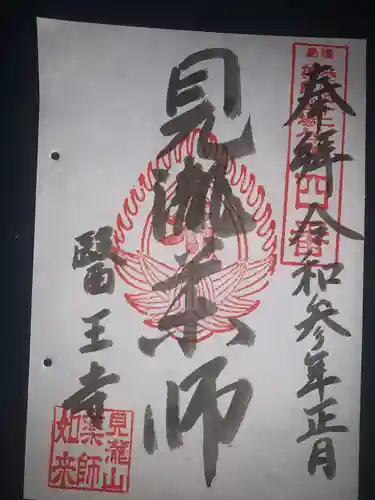 奉拝
令和参年正月
見瀧薬師
醫王寺
見瀧山
薬師
如来